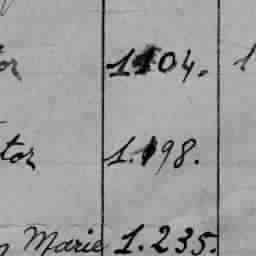 1104. 1
tor 1.198.
Marie 1.235.